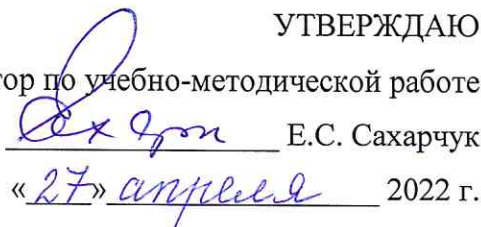 УТВЕРЖДАЮ
тор по учебно-методической работе
Е.С. Сахарчук
«27» апреля 2022 г.